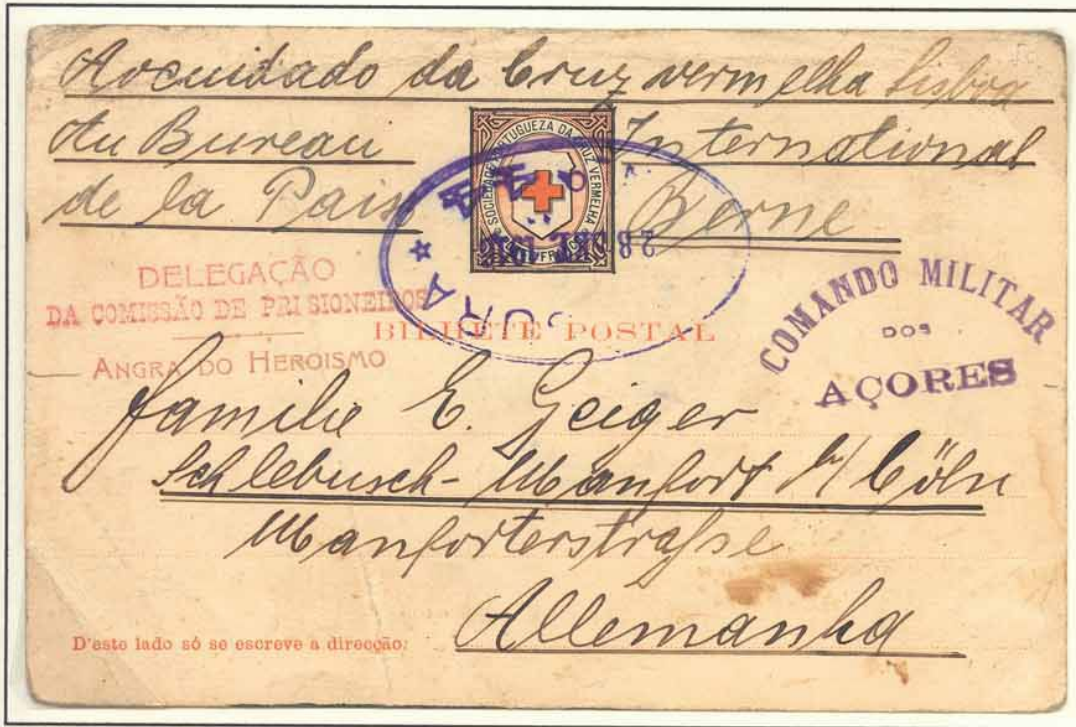 Aocuidado da Cruz vermelha Lisboa
Au Bureau International
de la Paix Berne
SOCIEDADE PORTUGUEZA DA CRUZ VERMELHA
PORTE FRANCO
28 DEZ
CENSURA
DELEGAÇÃO
DA COMISSÃO DE PRISIONEIROS
ANGRA DO HEROISMO
BILHETE POSTAL
COMANDO MILITAR
DOS
AÇORES
familie E. Geiger
Schlebusch-Manfort b/ Cöln
Manforterstrasse
Allemanha
D'este lado só se escreve a direcção: